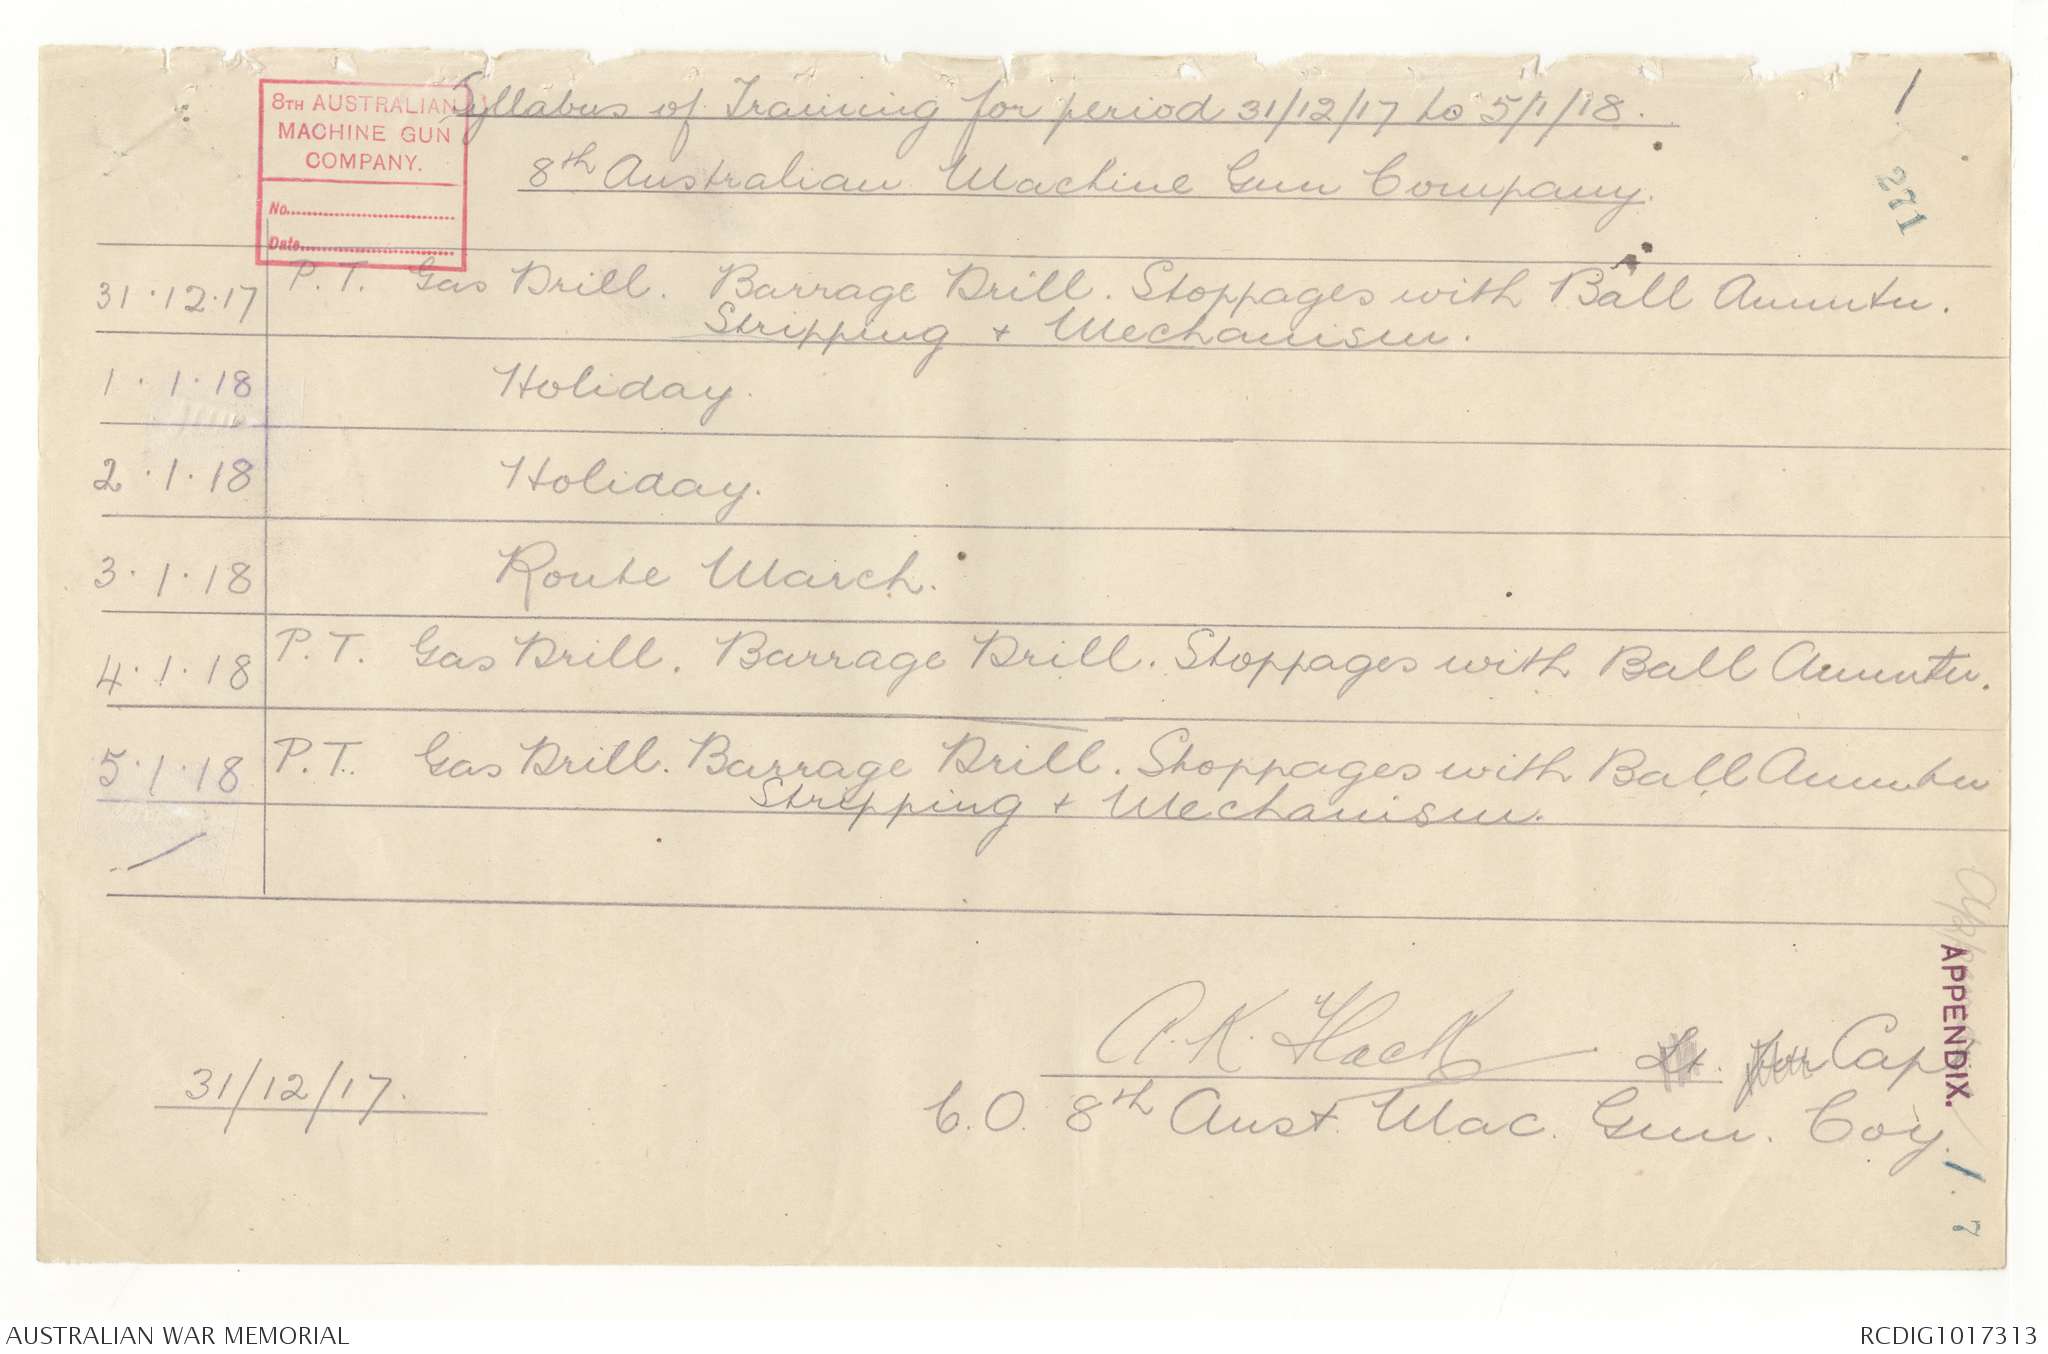 Syllabus of Training for period 31/12/17 to 5/1/18.
1
8TH AUSTRALIAN
MACHINE GUN
COMPANY.
No.
Date
8th Australian Machine Gun Company.
271
31.12.17 P.T. Gas Drill. Barrage Drill. Stoppages with Ball Ammtn.
Stripping + Mechanism.
1.1.18 Holiday.
2.1.18 Holiday.
3.1.18 Route March.
4.1.18 P.T. Gas Drill. Barrage Drill. Stoppages with Ball Ammtn.
5.1.18 P.T. Gas Drill. Barrage Drill. Stoppages with Ball Ammtn
Stripping + Mechanism.
APPENDIX.
1.
7
A.K. Hack Lt. for Capt
31/12/17.
C.O. 8th Aust. Mac. Gun. Coy.
AUSTRALIAN WAR MEMORIAL
RCDIG1017313